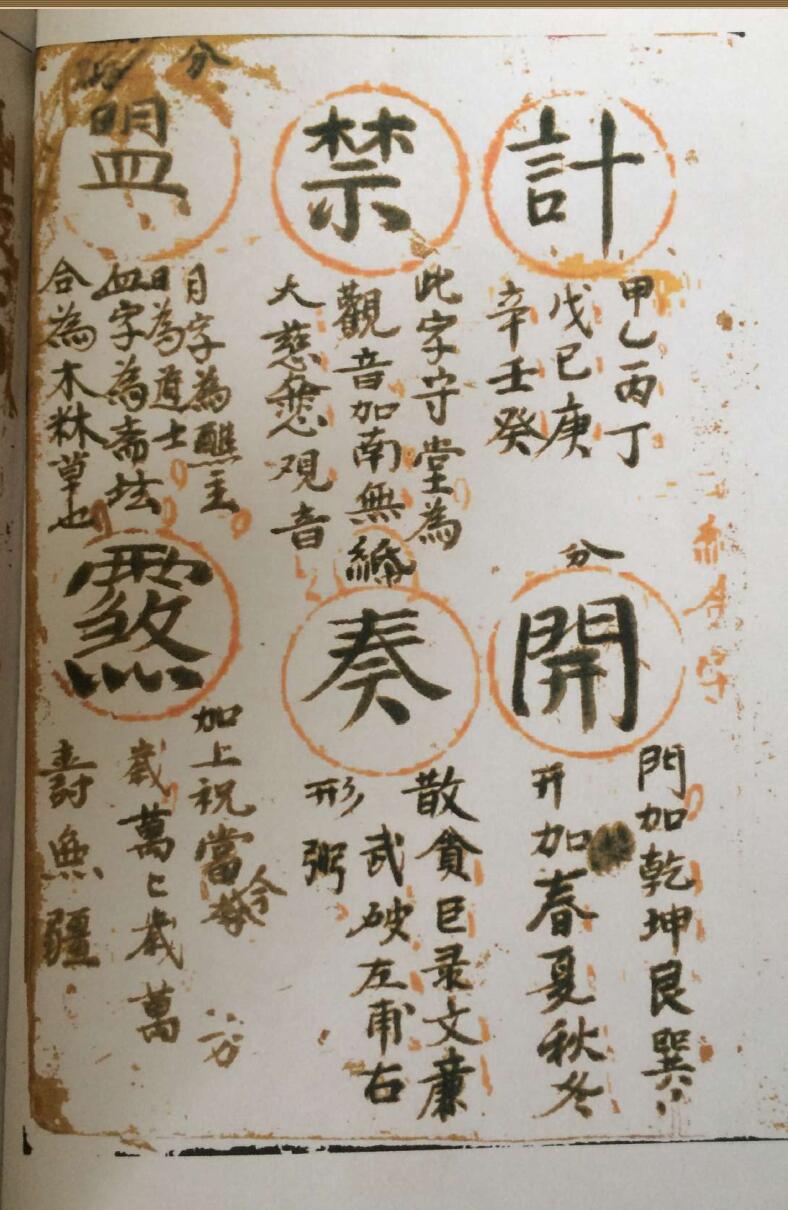 計
甲乙丙丁
戊己庚
辛壬癸
禁
此字守堂為
觀音加南無
大慈悲观音
分
盟
月字為醮主
日為道士
血字為斋坛
合為木林草也
分
開
門加乾坤艮巽
开加春夏秋冬
奏
散貪巨录文廉
武破左甫右
形弼
加上祝當今
歲萬匕歲萬
壽無疆